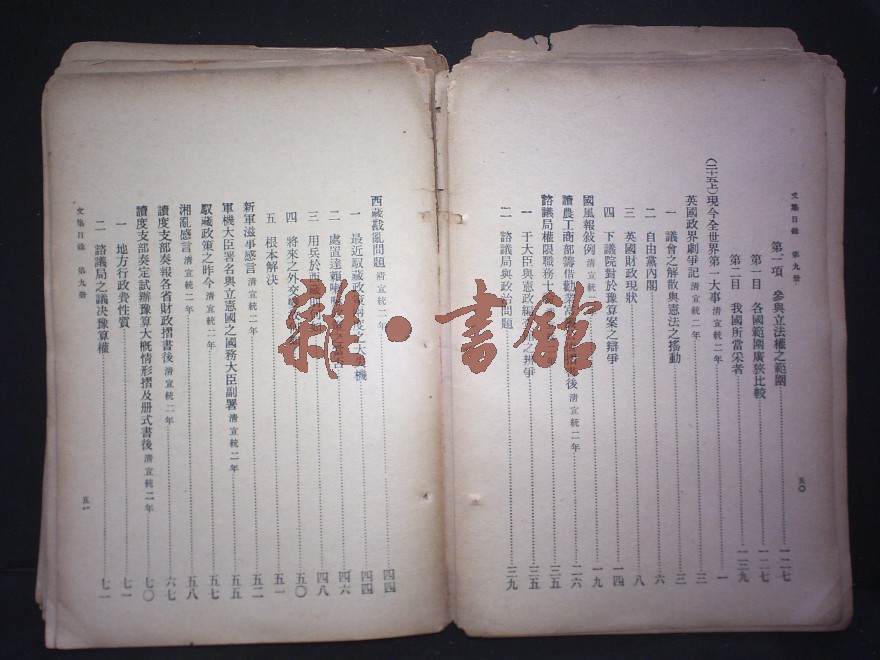 文集目錄 第九册
五〇
第二項 參與立法權之範圍……一二七
第一目 各國範圍廣狹比較……一二七
第二目 我國所當采者……一三九
(二十五上)現今全世界第一大事 清宣統二年……一
英國政界劇爭記……三
一 議會之解散與憲法之搖動……三
二 自由黨內閣……六
三 英國財政現狀……八
四 下議院對於豫算案之辯爭……一四
國風報敍例 清宣統二年……一九
讀農工商部籌借勸業 後 清宣統二年……二六
諮議局權限職務十 ……三五
一 于大臣與憲政編 爭……三五
二 諮議局與政治問題……三九
西藏戡亂問題 清宣統二年……四四
一 最近馭藏政策 機……四四
二 處置達賴喇 ……四六
三 用兵於西藏 ……四八
四 將來之外交 ……五〇
五 根本解決……五一
新軍滋事感言 清宣統二年……五二
軍機大臣署名與立憲國之國務大臣副署 清宣統二年……五五
馭藏政策之昨今 清宣統二年……五七
湘亂感言 清宣統二年……五八
讀度支部奏報各省財政摺書後 清宣統二年……六七
讀度支部奏定試辦豫算大概情形摺及册式書後 清宣統二年……七〇
一 地方行政費性質……七一
二 諮議局之議決豫算權……七一
文集目錄 第九册
五一
雜·書館